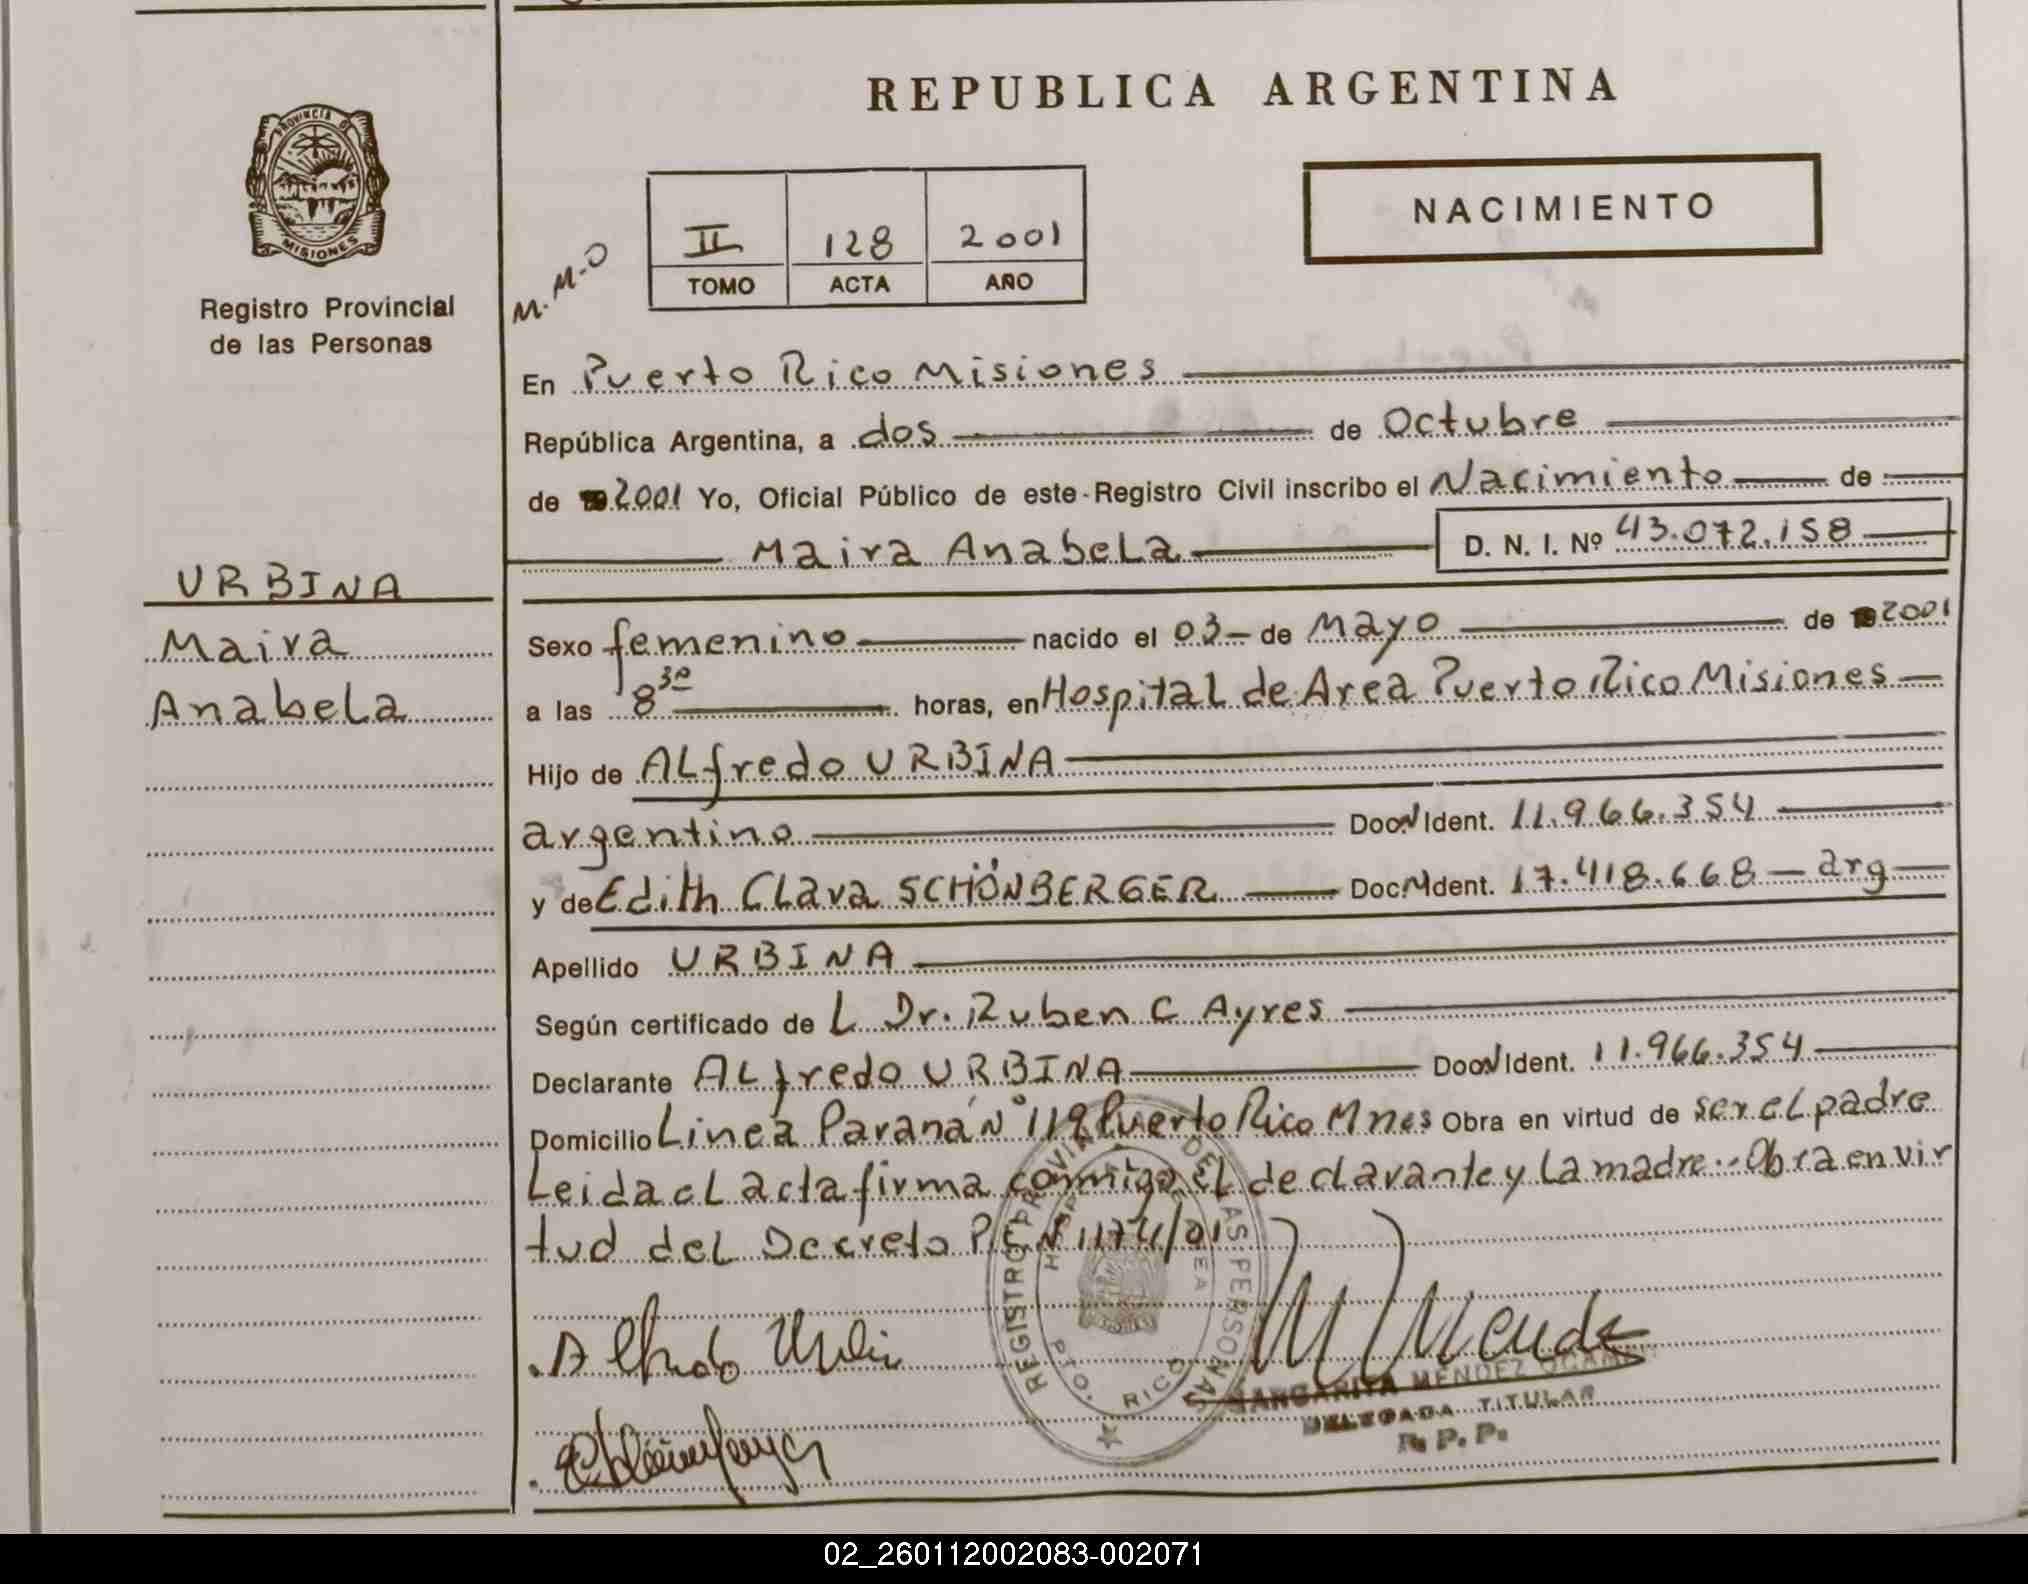 REPUBLICA ARGENTINA
PROVINCIA DE
MISIONES
Registro Provincial
de las Personas
M.M.O
II 128 2001
TOMO ACTA AÑO
NACIMIENTO
En Puerto Rico Misiones
República Argentina, a dos de Octubre
de 2001 Yo, Oficial Público de este Registro Civil inscribo el Nacimiento de
Maira Anabela D. N. I. Nº 43.072.158
URBINA
Maira
Anabela
Sexo femenino nacido el 03 de Mayo de 2001
a las 8 30 horas, en Hospital de Area Puerto Rico Misiones
Hijo de ALfredo URBINA
argentino Doc.N Ident. 11.966.354
y de Edith Clara SCHÖNBERGER Doc.N Ident. 17.418.668 - arg
Apellido URBINA
Según certificado de L Dr. Ruben C Ayres
Declarante ALfredo URBINA Doc.N Ident. 11.966.354
Domicilio Linea Paraná N° 119 Puerto Rico Mnes Obra en virtud de ser el padre
Leida el acta firma conmigo el declarante y la madre.- Obra en vir
tud del Decreto P.E.N 1174/01
REGISTRO PROVINCIAL DE LAS PERSONAS
PTO. RICO
MARGARITA MENDEZ OCAMPO
DELEGADA TITULAR
R. P. P.
02_260112002083-002071